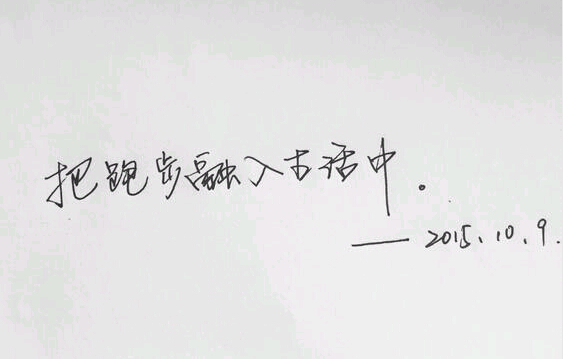 把跑步融入生活中。
—— 2015.10.9.